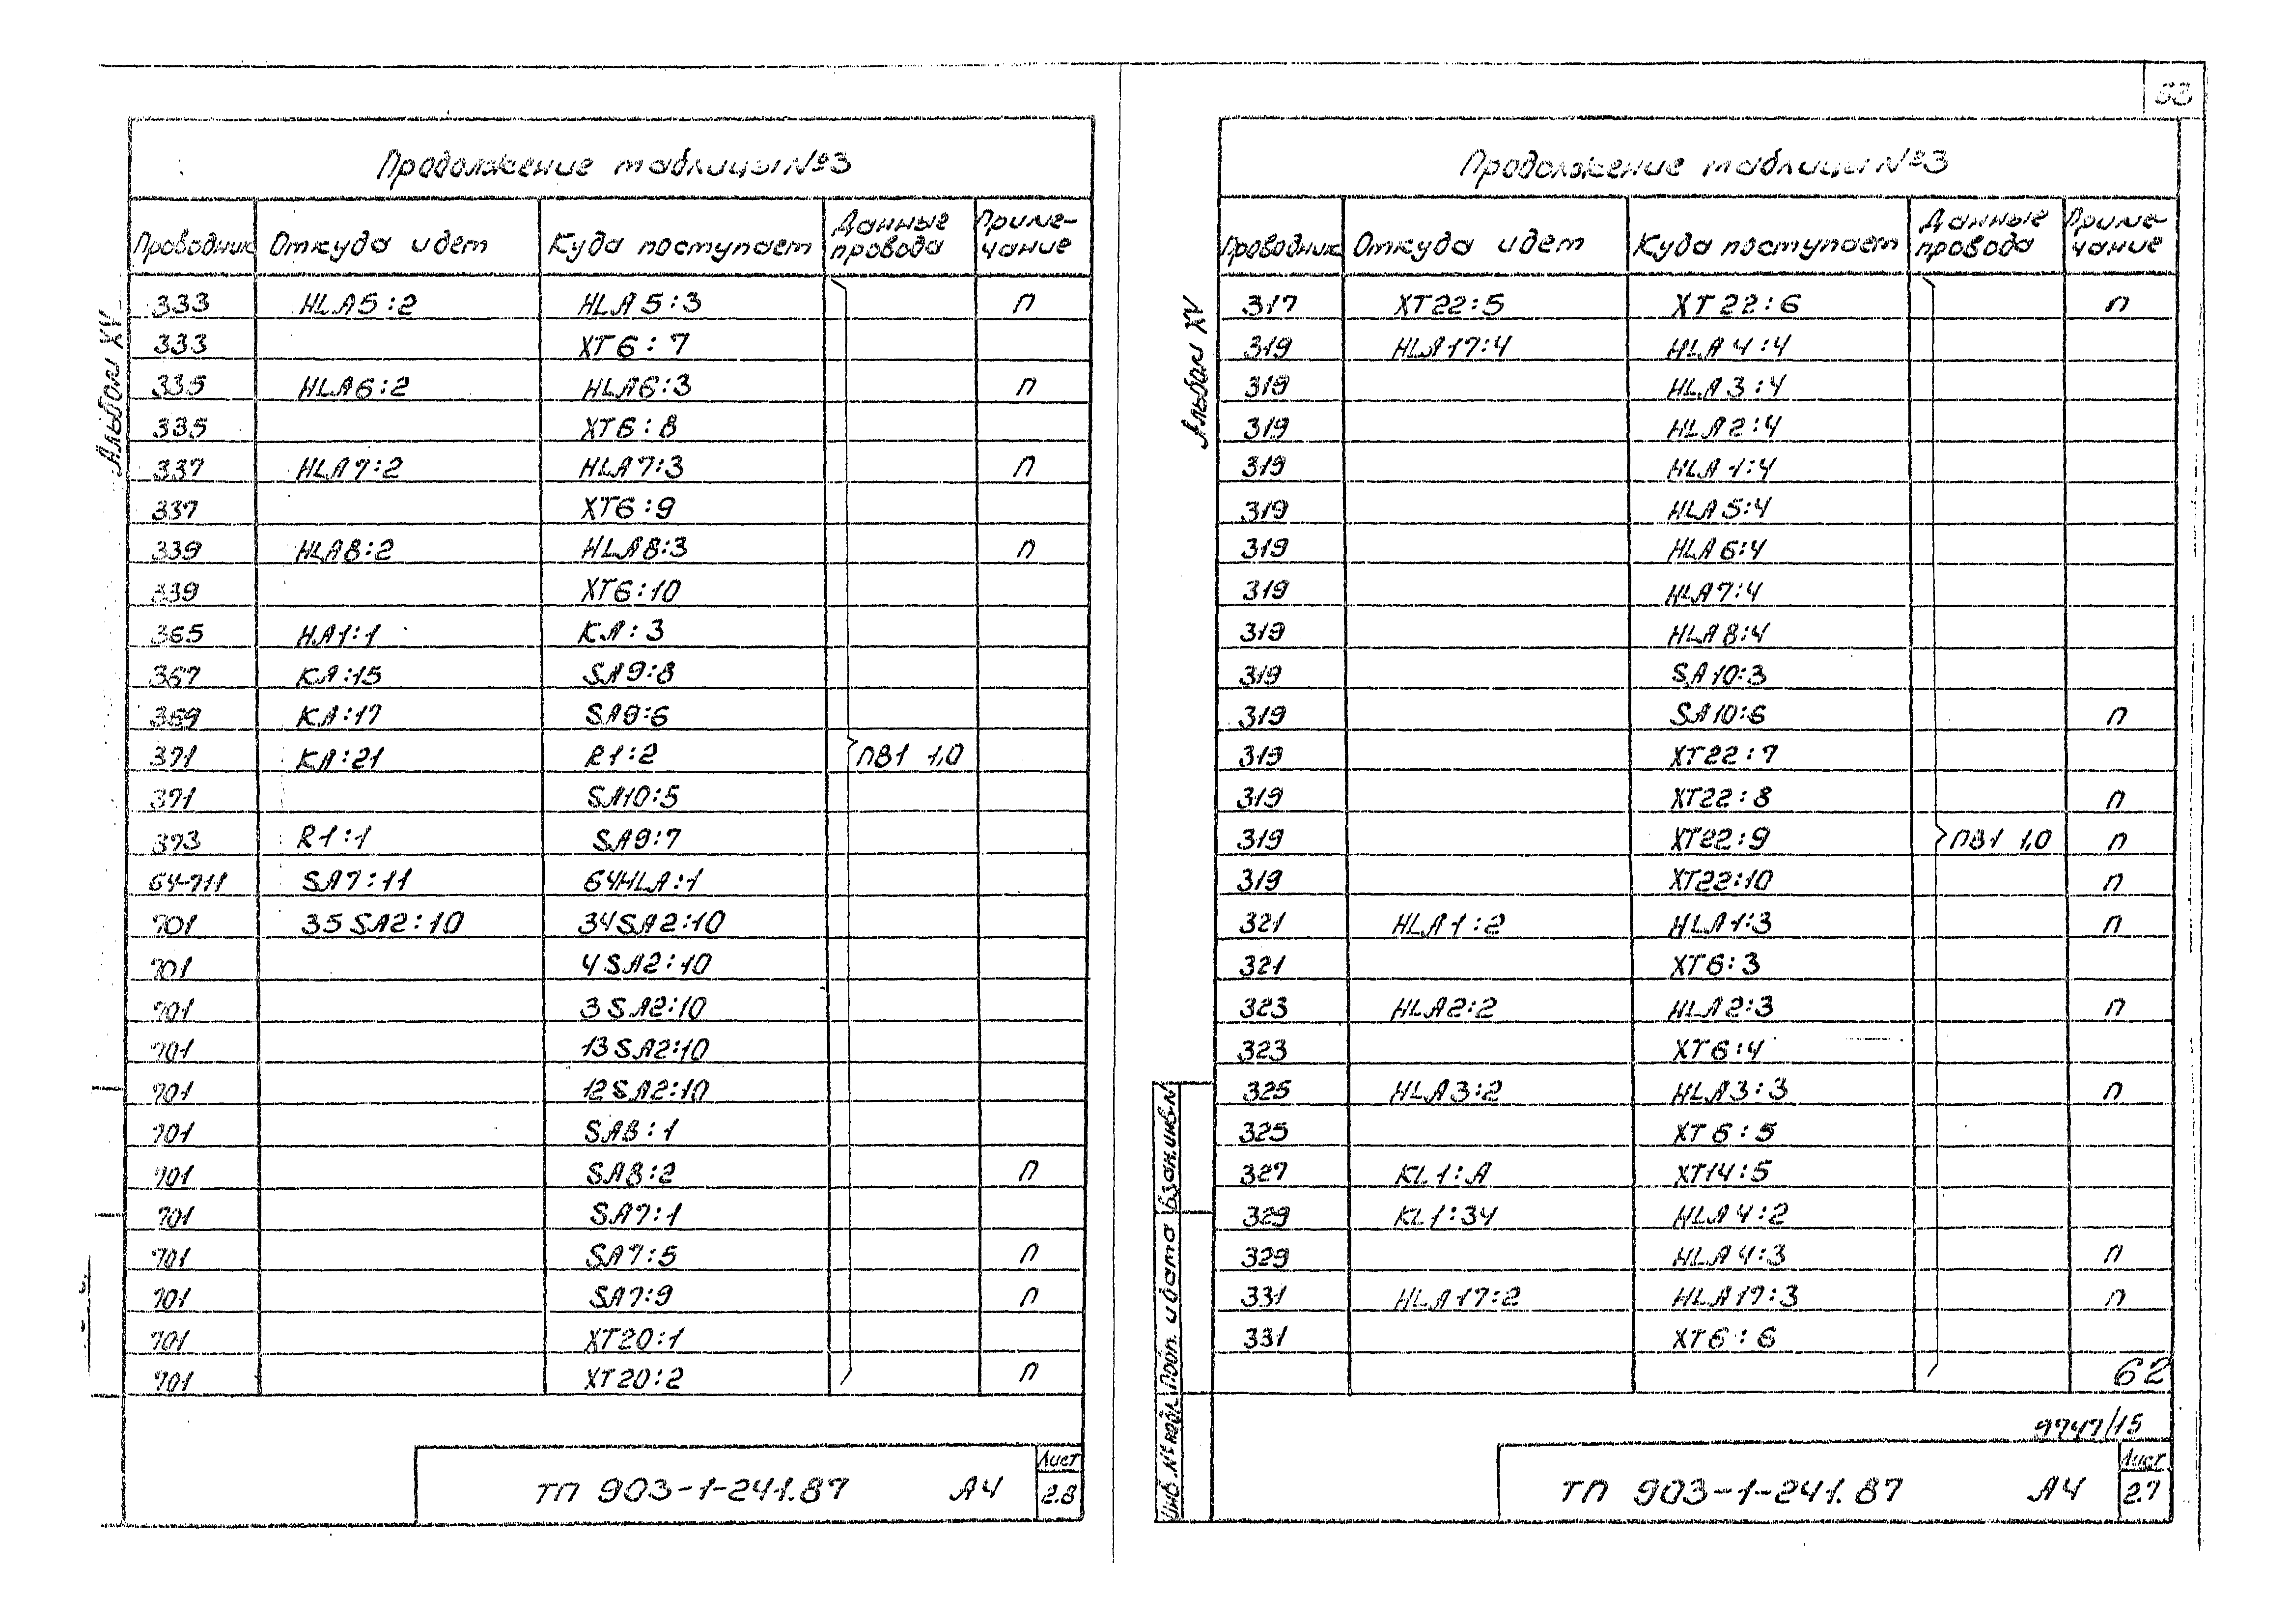 53
Продолжение таблицы №3
Проводник Откуда идет Куда поступает Данные провода Приме-чание
333 HLA5:2 HLA5:3 П
333 XT6:7
335 HLA6:2 HLA6:3 П
335 XT6:8
337 HLA7:2 HLA7:3 П
337 XT6:9
339 HLA8:2 HLA8:3 П
339 XT6:10
365 HA1:1 KA:3
367 KA:15 SA9:8
369 KA:17 SA9:6
371 KA:21 R1:2 ПВ1 1,0
371 SA10:5
373 R1:1 SA9:7
64-711 SA7:11 64HLA:1
701 35SA2:10 34SA2:10
701 4SA2:10
701 3SA2:10
701 13SA2:10
701 12SA2:10
701 SA8:1
701 SA8:2 П
701 SA7:1
701 SA7:5 П
701 SA7:9 П
701 XT20:1
701 XT20:2 П
Альбом XV
ТП 903-1-241.87 А4
Лист
2.8
Продолжение таблицы №3
Проводник Откуда идет Куда поступает Данные провода Приме-чание
317 XT22:5 XT22:6 П
319 HLA17:4 HLA4:4
319 HLA3:4
319 HLA2:4
319 HLA1:4
319 HLA5:4
319 HLA6:4
319 HLA7:4
319 HLA8:4
319 SA10:3
319 SA10:6 П
319 XT22:7
319 XT22:8 П
319 XT22:9 ПВ1 1,0 П
319 XT22:10 П
321 HLA1:2 HLA1:3 П
321 XT6:3
323 HLA2:2 HLA2:3 П
323 XT6:4
325 HLA3:2 HLA3:3 П
325 XT6:5
327 KL1:A XT14:5
329 KL1:34 HLA4:2
329 HLA4:3 П
331 HLA17:2 HLA17:3 П
331 XT6:6
62
Альбом XV
Инв.№ подл. Подп. и дата Взам.инв.№
9747/15
ТП 903-1-241.87 А4
Лист
2.7